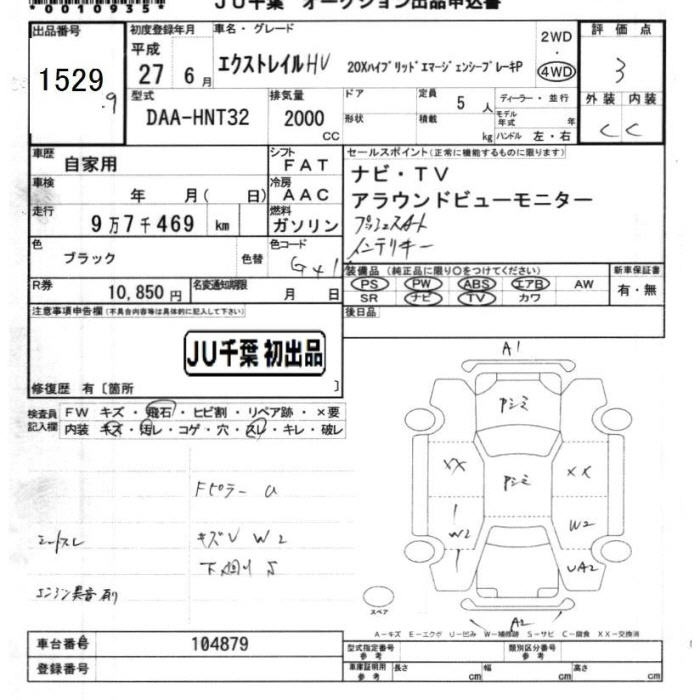 00109359 JU千葉 オークション出品申込書
出品番号 初度登録年月 車名・グレード 評価点
平成 27年 6月 エクストレイルHV 20XハイブリッドエマージェンシーブレーキP 2WD 4WD 3
1529
型式 排気量 ドア 定員 5 人 ディーラー・並行 外装 内装
DAA-HNT32 2000 CC 形状 積載 kg モデル年式 年 ハンドル 左・右 C C
車歴 自家用 シフト FAT セールスポイント(正常に機能するものに限ります)
車検 年 月( 日) 冷房 AAC ナビ・TV
走行 9万7千469 km 燃料 ガソリン アラウンドビューモニター
プッシュスタート
インテリキー
色 ブラック 色替 色コード G41
装備品(純正品に限り○をつけてください) 新車保証書
PS PW ABS エアB AW 有・無
SR ナビ TV カワ
R券 10,850円 名変通知期限 月 日
後日品
注意事項申告欄(不具合内容等は具体的に記入して下さい)
JU千葉 初出品
修復歴 有〔箇所 〕
検査員記入欄 FW キズ・飛石・ヒビ割・リペア跡・×要
内装 キズ・汚レ・コゲ・穴・スレ・キレ・破レ
A1
Pシミ
Fピラー U
XX Pシミ XX
シートスレ キズV W2
W2 W2
下廻り S
エンジン異音有り
UA2
スペア
A2
A-キズ E-エクボ U-凹み W-補修跡 S-サビ C-腐食 XX-交換済
車台番号 104879
型式指定番号 参考 類別区分番号 参考
登録番号
車庫証明用 参考 長さ cm 幅 cm 高さ cm